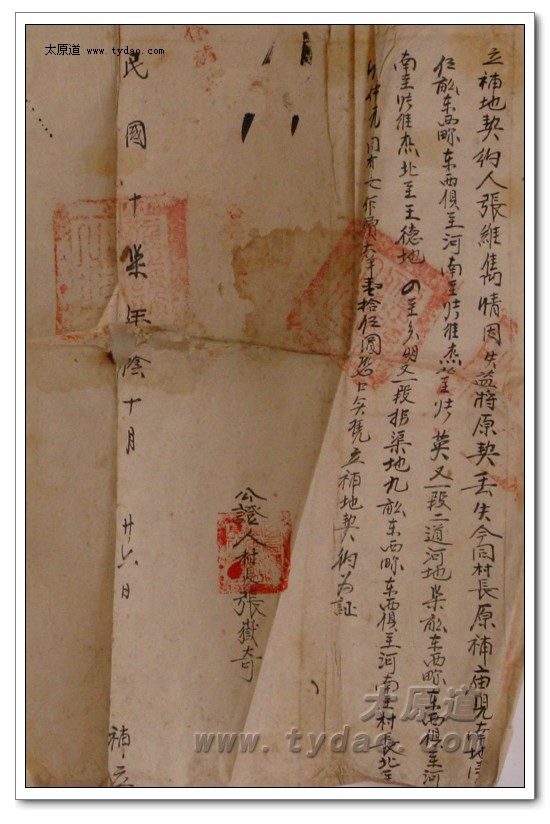 太原道 www.tydao.com
立補地契約人張維雋情因失盜將原契丟失今同村長原補庙見
伍畝东西畛东西俱至河南至 維杰北至 英又一段二道河地柒畝东西畛东西俱至河
南至 維杰北至王德地 至分明又一段拐渠地九畝东西畛东西俱至河南至村長北至
作價大羊壹拾伍圓 立補地契約为証
公證人村長張嶽奇
民國十柒年陰十月廿六日
補立
太原道
www.tydao.com